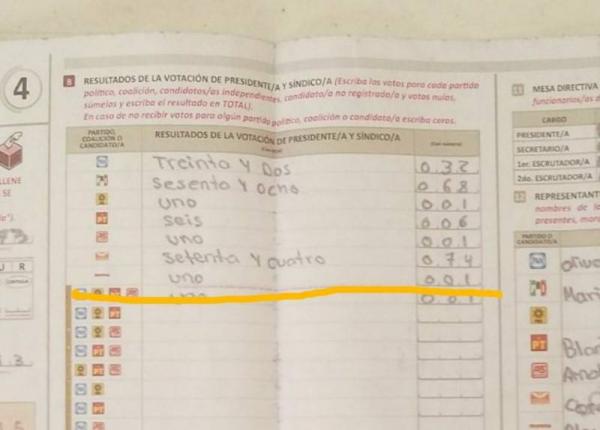 4
8 RESULTADOS DE LA VOTACIÓN DE PRESIDENTE/A Y SÍNDICO/A (Escriba los votos para cada partido
político, coalición, candidatos/as independientes, candidato/a no registrado/a y votos nulos,
súmelos y escriba el resultado en TOTAL).
En caso de no recibir votos para algún partido político, coalición o candidato/a escriba ceros.
PARTIDO,
COALICIÓN O
CANDIDATO/A
RESULTADOS DE LA VOTACIÓN DE PRESIDENTE/A Y SÍNDICO/A
(Con número)
Treinta y Dos 032
Sesenta y ocho 068
uno 001
PT seis 006
uno 001
Setenta y cuatro 074
uno 001
001
PT
PT
PT
PT
PT
LLENE
SE
MESA DIRECTIVA
funcionarios/as d
CARGO
PRESIDENTE/A
SECRETARIO/A
1er. ESCRUTADOR/A
2do. ESCRUTADOR/A
REPRESENTANT
nombres de lo
PARTIDO O
CANDIDATO/A
Mari
PT Blan